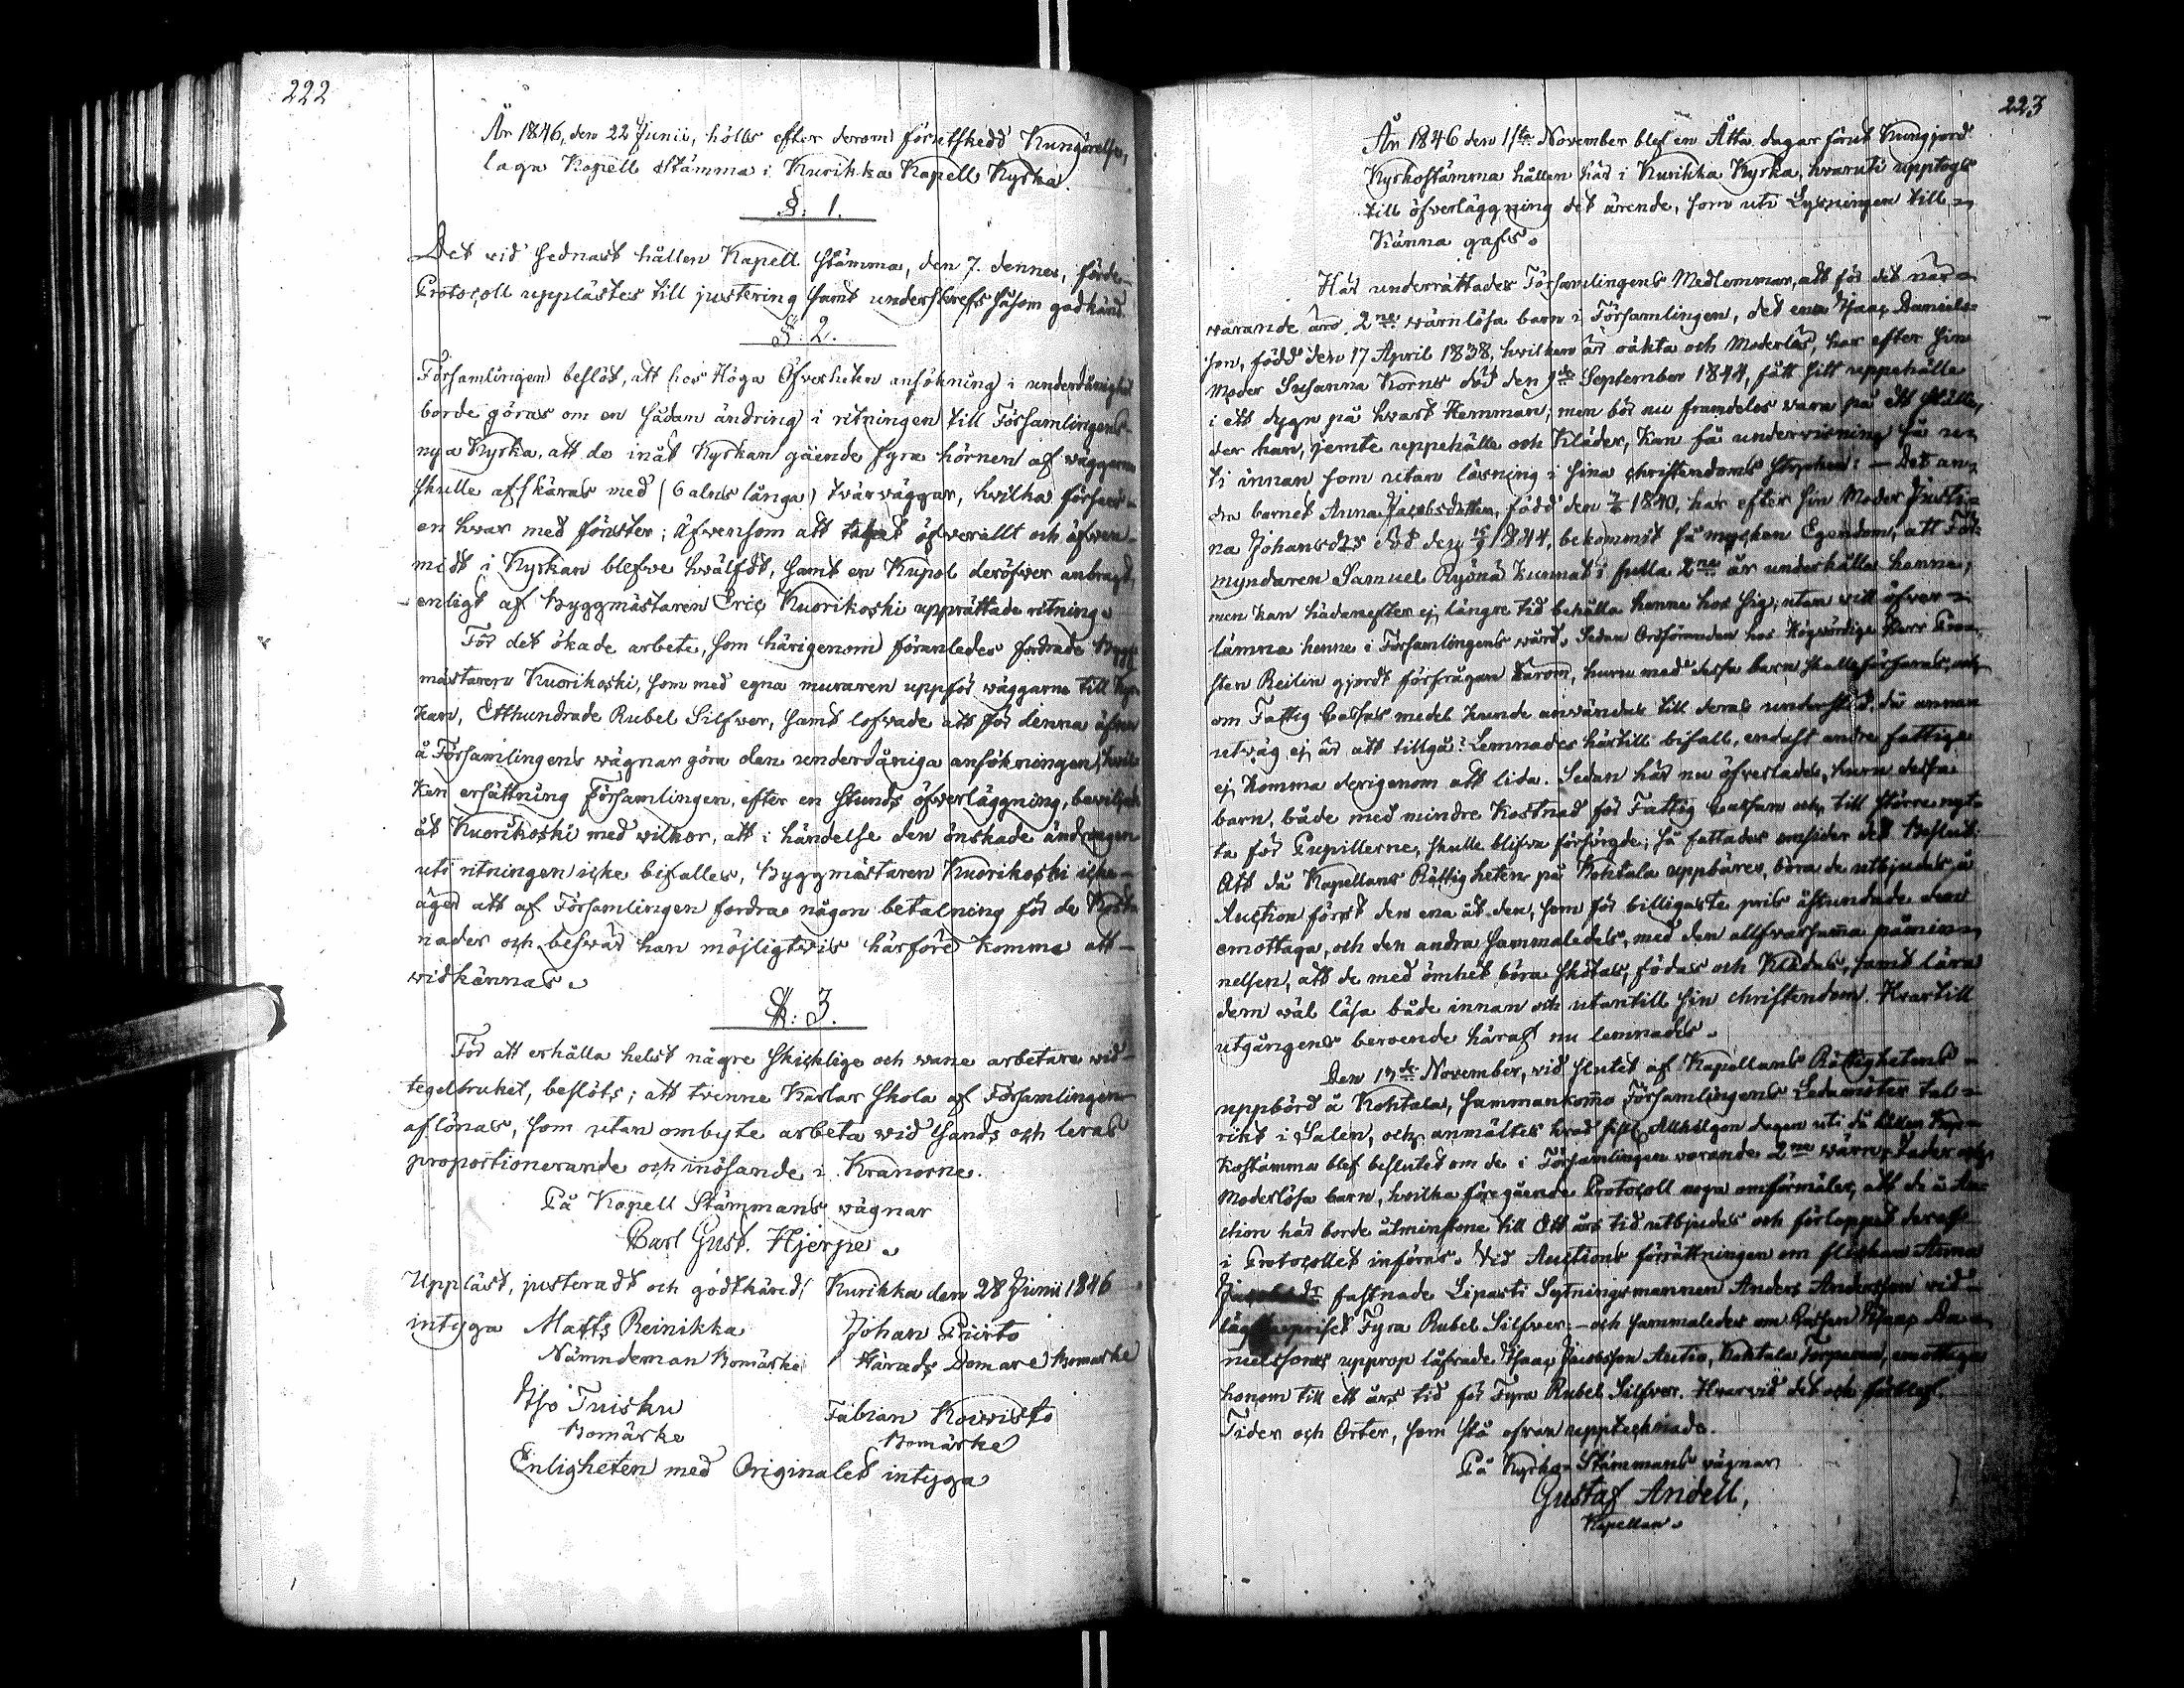 222
År 1846, den 22 Junii, hölls efter derom förutskedd Kungörelse,
laga Kapell Stämma i Kurikka Kapell Kyrka.
§: 1.
Det vid sednast hållen Kapell Stämma, den 7. dennes, förde
Protocoll upplästes till justering samt underskrefs såsom godkänd.
§: 2.
Församlingen beslöt, att hos Höga Öfverheten ansökning i underdånighet
borde göras om en sådan ändring i ritningen till Församlingens
nya Kyrka, att de inåt Kyrkan gående fyra hörnen af väggarne
skulle afskäras med (6 alnars långa) tvärväggar, hvilka förses
en hvar med fönster; äfvensom att taket öfverallt och äfven
midt i Kyrkan blefve hvälfdt, samt en Kupol deröfver anbragt,
enligt af Byggmästaren Eric Kuorikoski upprättade ritning.
För det ökade arbete, som härigenom föranledes fordrade Bygg
mästaren Kuorikoski, som med egna muraren uppför väggarne till Kyr
kan, Etthundrade Rubel Silfver, samt lofvade att för denna äfven
å Församlingens wägnar göra den underdåniga ansökningen, hvil
ken ersättning Församlingen, efter en stunds öfverläggning, beviljade
åt Kuorikoski med wilkor, att i händelse den önskade ändringen
uti ritningen icke bifalles, Byggmästaren Kuorikoski icke
äger att af Församlingen fordra någon betalning för de Kost
nader och besvär han möjligtvis härföre komme att
widkännas.
§: 3.
För att erhålla helst någre skicklige och wane arbetare wid
tegelbruket, beslöts; att tvenne Karlar skola af Församlingen
aflönas, som utan ombyte arbeta wid Sands och leras
proportionerande och inösande i Kranorne.
På Kapell Stämmans wägnar
Carl Gust. Hjerpe.
Uppläst, justeradt och godtkänd; Kurikka den 28 Junii 1846
intyga Matts Reinikka Johan Piirto
Nämndeman Bomärke Härads Domare Bomärke
Isso Tuisku Fabian Koivisto
Bomärke Bomärke
Enligheten med Originalet intyga
223
År 1846 den 1sta November blef en Åtta dagar förut Kungjord
Kyrkostämma hållen här i Kurikka Kyrka, hvaruti upptogs
till öfverläggning det ärende, som uti Lysningen till
känna gafs.
Här underrättades Församlingens Medlemmar, att för det när
warande äro 2ne wärnlösa barn i Församlingen, det ena Isaac Daniels
son, född den 17 April 1838, hvilken är oäkta och Moderlös, har efter sin
Moder Susanna Korns död den September 1844, fått sitt uppehälle
i ett dygn på hvart Hemman; men bör nu framdeles wara på ett ställe,
der han, jemte uppehälle och Kläder, kan få undervisning så
i innan som utan läsning i sina christendoms stycken: — Det an
dra barnet Anna Jacobsdotter, född den 1840, har efter sin Moder Justi
na Johansdrs död den 1844, bekommit så mycken Egendom, att För
myndaren Samuel Ryönä kunnat i fulla 2ne år underhålla henne,
men kan hädanefter ej längre tid behålla henne hos sig, utan will öfver
lämna henne i Församlingens wård. Sedan Ordföranden hos Högvördige Herr Pro
sten Reilin gjordt förfrågan derom, huru med desse barn skulle förfaras, och
om Fattig Cassas medel kunde användas till deras understöd, då annan
utväg ej är att tillgå: Lemnades härtill bifall, endast andre fattige
ej komma derigenom att lida. Sedan här nu öfverlades, huru desse
barn, både med mindre kostnad för Fattig Cassan och till större nyt
ta för Pupillerne, skulle blifva försörgde; så fattades omsider det Beslut:
Att då Kapellans Rättigheten på Kohtala uppbäres, böra de utbjudas å
Auction först den ena åt den, som för billigaste pris åstundade den
emottaga, och den andra sammaledes, med den allfvarsamma påmin
nelsen, att de med ömhet böra skötas, födas och Klädas, samt lära
dem wäl läsa både innan och utantill sin christendom. Hvartill
utgångens beroende häraf nu lemnades.
Den 13de November, vid slutet af Kapellans Rättighetens
uppbörd å Kohtala, sammankomo Församlingens Ledamöter tal
rikt i Salen, och anmältes hvad sist Allhelgon dagen uti då hållen Kyr
kostämma blef beslutet om de i Församlingen warande 2ne wärn, Fader och
Moderlösa barn, hvilka föregående Protocoll noga omförmäler, att de å Au
ction här borde åtminstone till Ett års tid utbjudas och förloppet deraf
i Protocollet införas. Vid Auctions förrättningen om flickan Anna
fastnade Lipasti Sytningsmannen Anders Andersson vid
priset Fyra Rubel Silfver — och sammaledes om Gossen Isaac Da
nielssons upprop låfvade Isaac Jacobsson Autio, Kohtala Torpare, emottaga
honom till ett års tid för Fyra Rubel Silfver. Hvarvid det och förblef.
Tider och Orter, som stå ofvan upptecknade.
På Kyrko Stämmans wägnar
Gustaf Andell,
Kapellan.